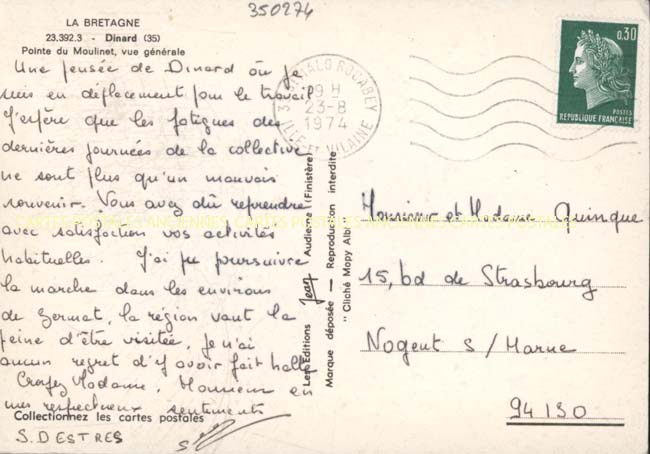 350274
LA BRETAGNE
23.392.3 - Dinard (35)
Pointe du Moulinet, vue générale
Une pensée de Dinard où je
suis en déplacement pour le travail
J'espère que les fatigues des
dernières journées de la collective
ne sont plus qu'un mauvais
souvenir. Vous avez dû reprendre
avec satisfaction vos activités
habituelles. J'ai pu poursuivre
la marche dans les environs
de Zermat, la région vaut la
peine d'être visitée, je n'ai
aucun regret d'y avoir fait halte
Croyez Madame, Monsieur en
mes respectueux sentiments
Collectionnez les cartes postales
S. DESTRES
Les Editions Jean Audierne (Finistère)
Marque déposée — Reproduction interdite
"Cliché Mopy Albi"
ST MALO ROCABEY
19 H
23-8
1974
ILLE ET VILAINE
0,30
POSTES
REPUBLIQUE FRANÇAISE
Monsieur et Madame Quinque
15, bd de Strasbourg
Nogent S / Marne
94130
CARTES POSTALES ANCIENNES CARTES POSTALES ANCIENNES CARTES POSTALES